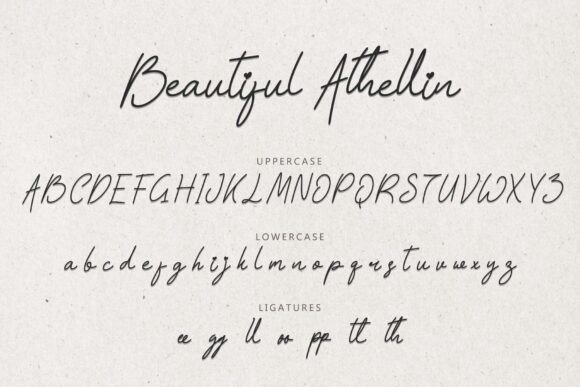 Beautiful Athellin
UPPERCASE
ABCDEFGHIJKLMNOPQRSTUVWXYZ
LOWERCASE
abcdefghijklmnopqrstuvwxyz
LIGATURES
ee gg ll oo pp tl th